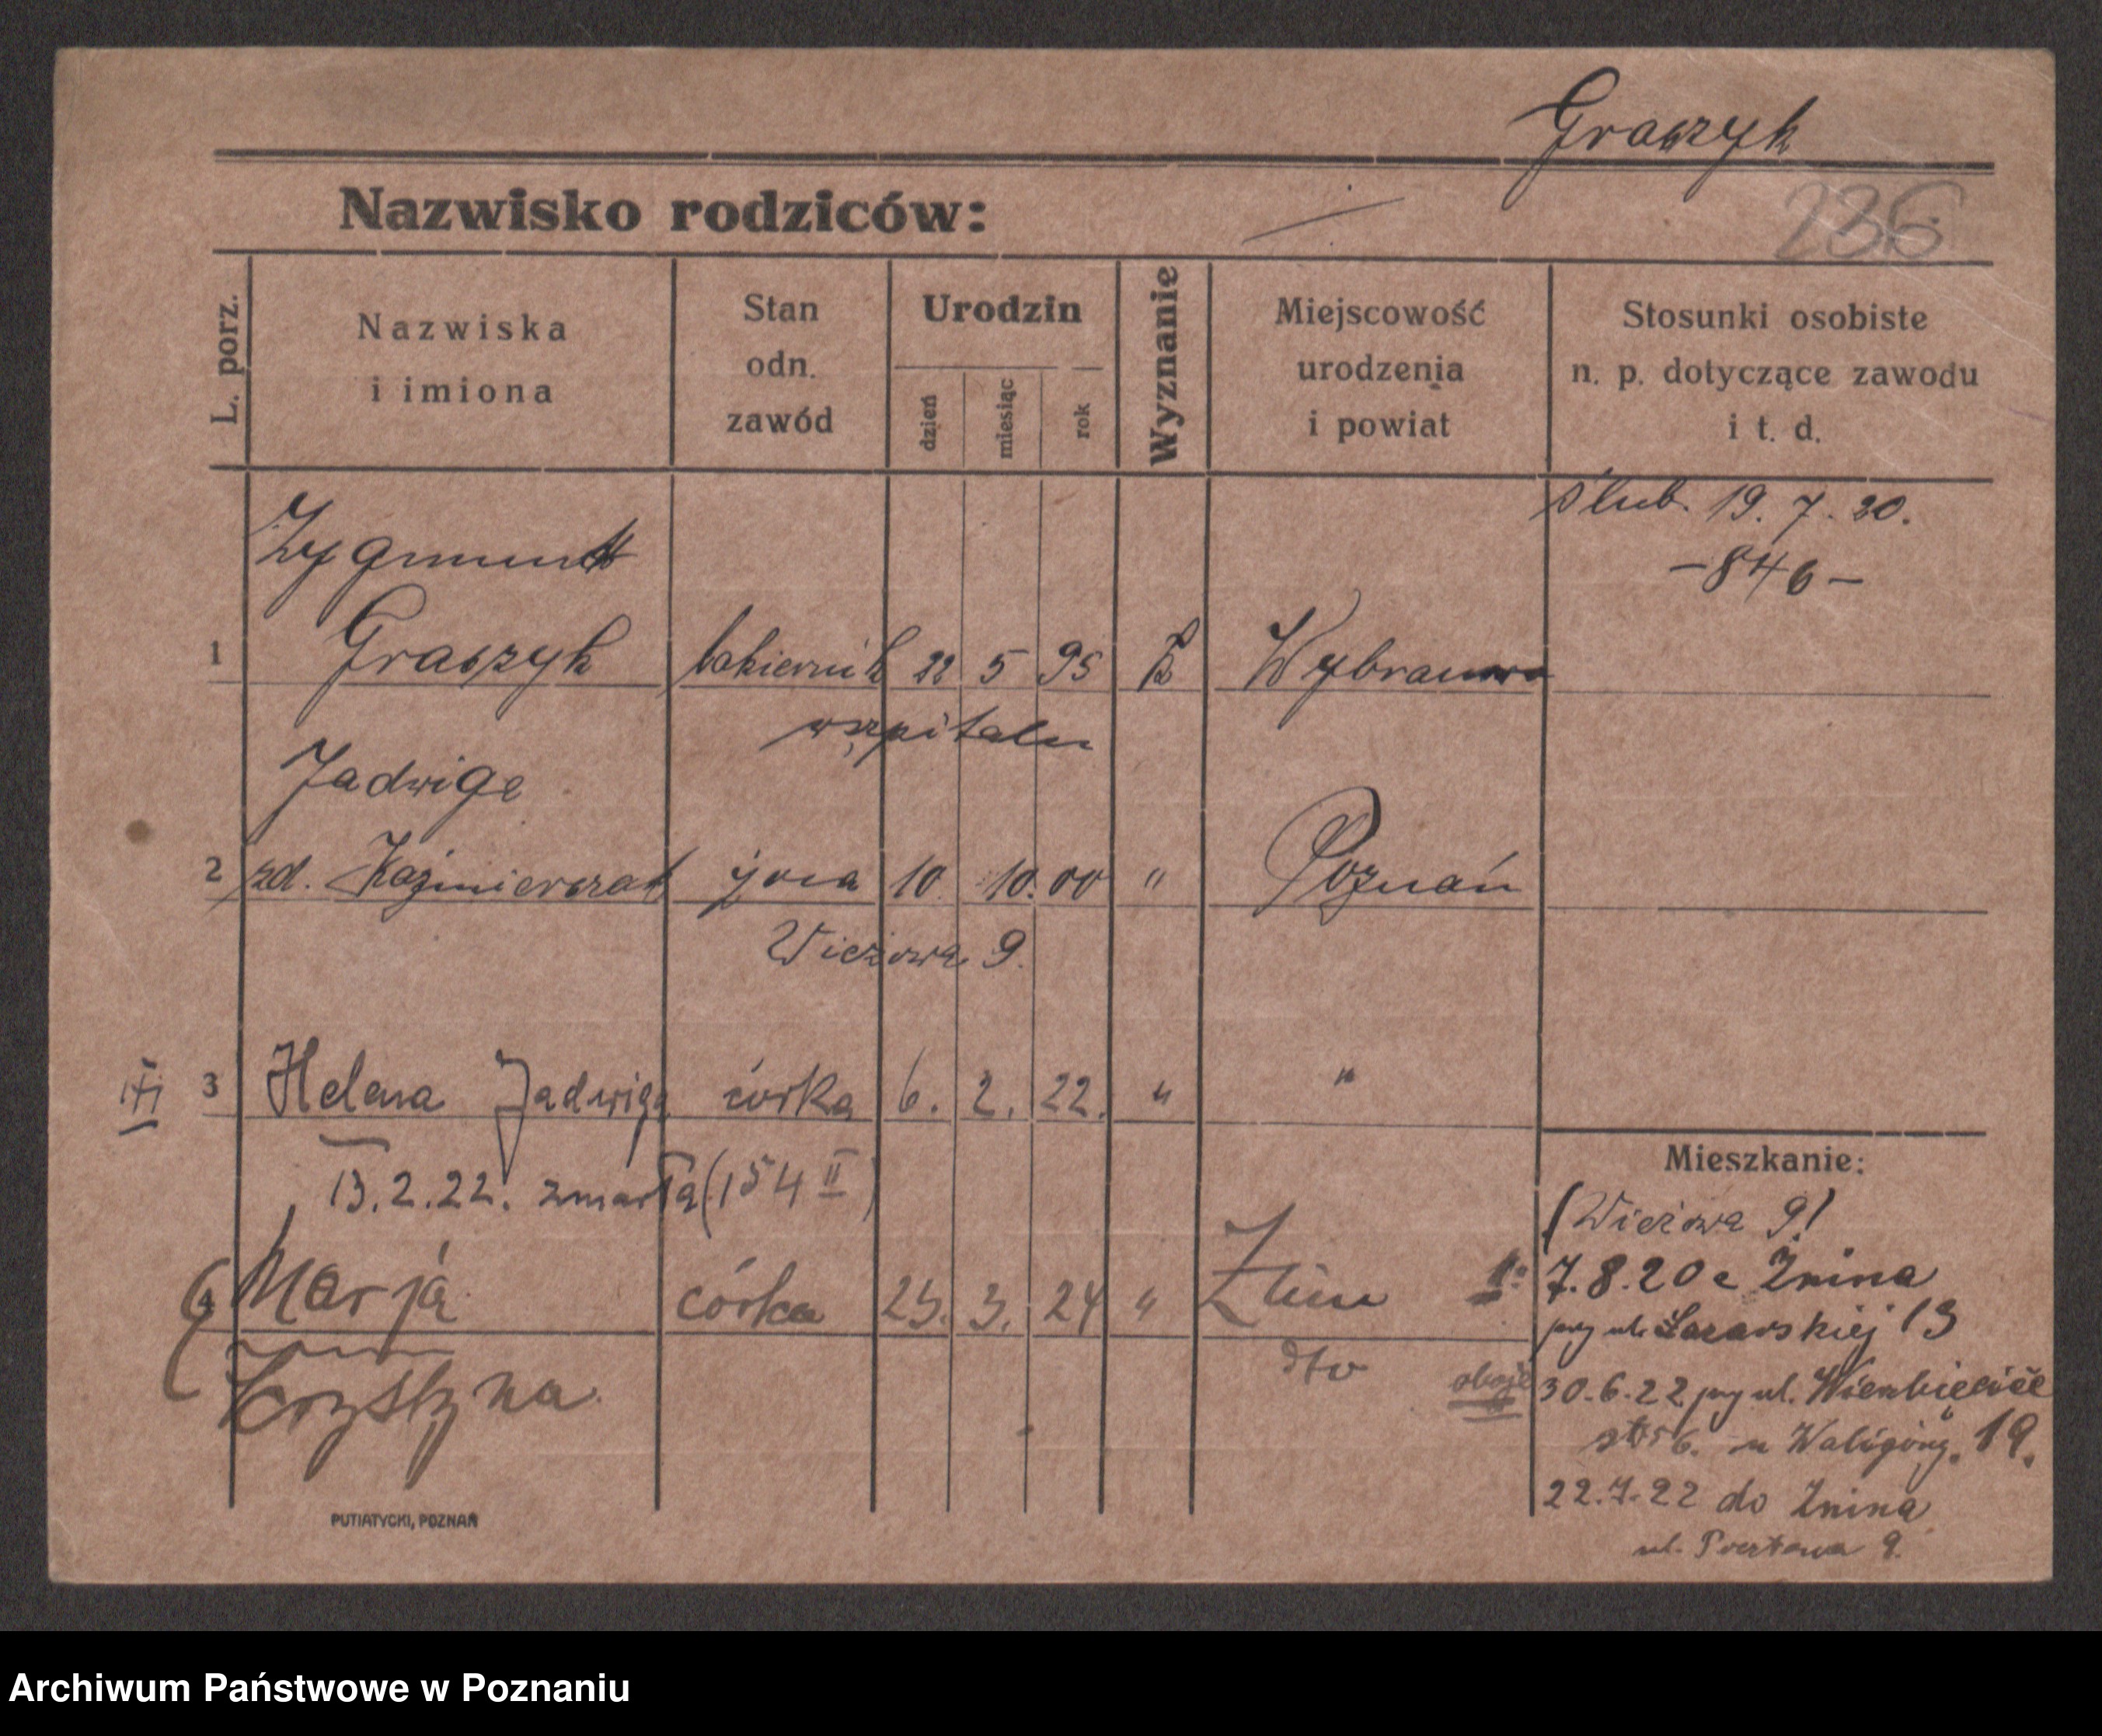 Graczyk
Nazwisko rodziców:
236
L. porz.
Nazwiska
i imiona
Stan
odn.
zawód
Urodzin
dzień
miesiąc
rok
Wyznanie
Miejscowość
urodzenia
i powiat
Stosunki osobiste
n. p. dotyczące zawodu
i t. d.
Zygmunt
ślub. 19. 7. 20.
– 846 –
1 Graczyk 22 5 95 K
w szpitalu
Jadwiga
2 zd. Kaźmierczak żona 10. 10. 00 " Poznań
Wieżowa 9.
3 Helena Jadwiga córka 6. 2. 22. " "
13.2.22. zmarła (154 II)
Mieszkanie:
(Wieżowa 9)
Marja córka 25. 3. 24 " Żnin
7.8.20 z Żnina
przy ul. Łazarskiej 13
dto
oboje
Krystyna
30.6.22 przy ul.
u Waligóry. 19.
22.7.22 do Żnina
ul. Pocztowa 9.
PUTIATYCKI, POZNAŃ
Archiwum Państwowe w Poznaniu